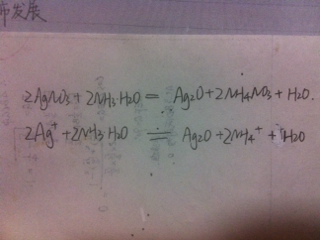 布发展
2AgNO₃+2NH₃·H₂O= Ag₂O+2NH₄NO₃+H₂O.
2Ag⁺+2NH₃·H₂O = Ag₂O+2NH₄⁺+H₂O